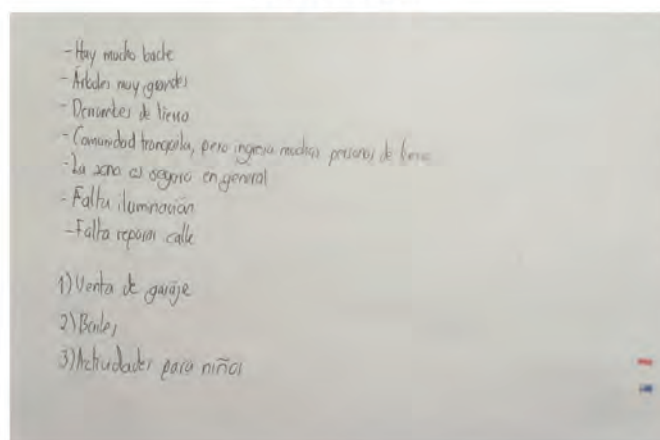 - Hay mucho bache
- Árboles muy grandes
- Derrumbes de tierra
- Comunidad tranquila, pero ingresa muchas personas de fuera
- La zona es segura en general
- Falta iluminación
- Falta reparar calle
1) Venta de garaje
2) Bailes
3) Actividades para niños